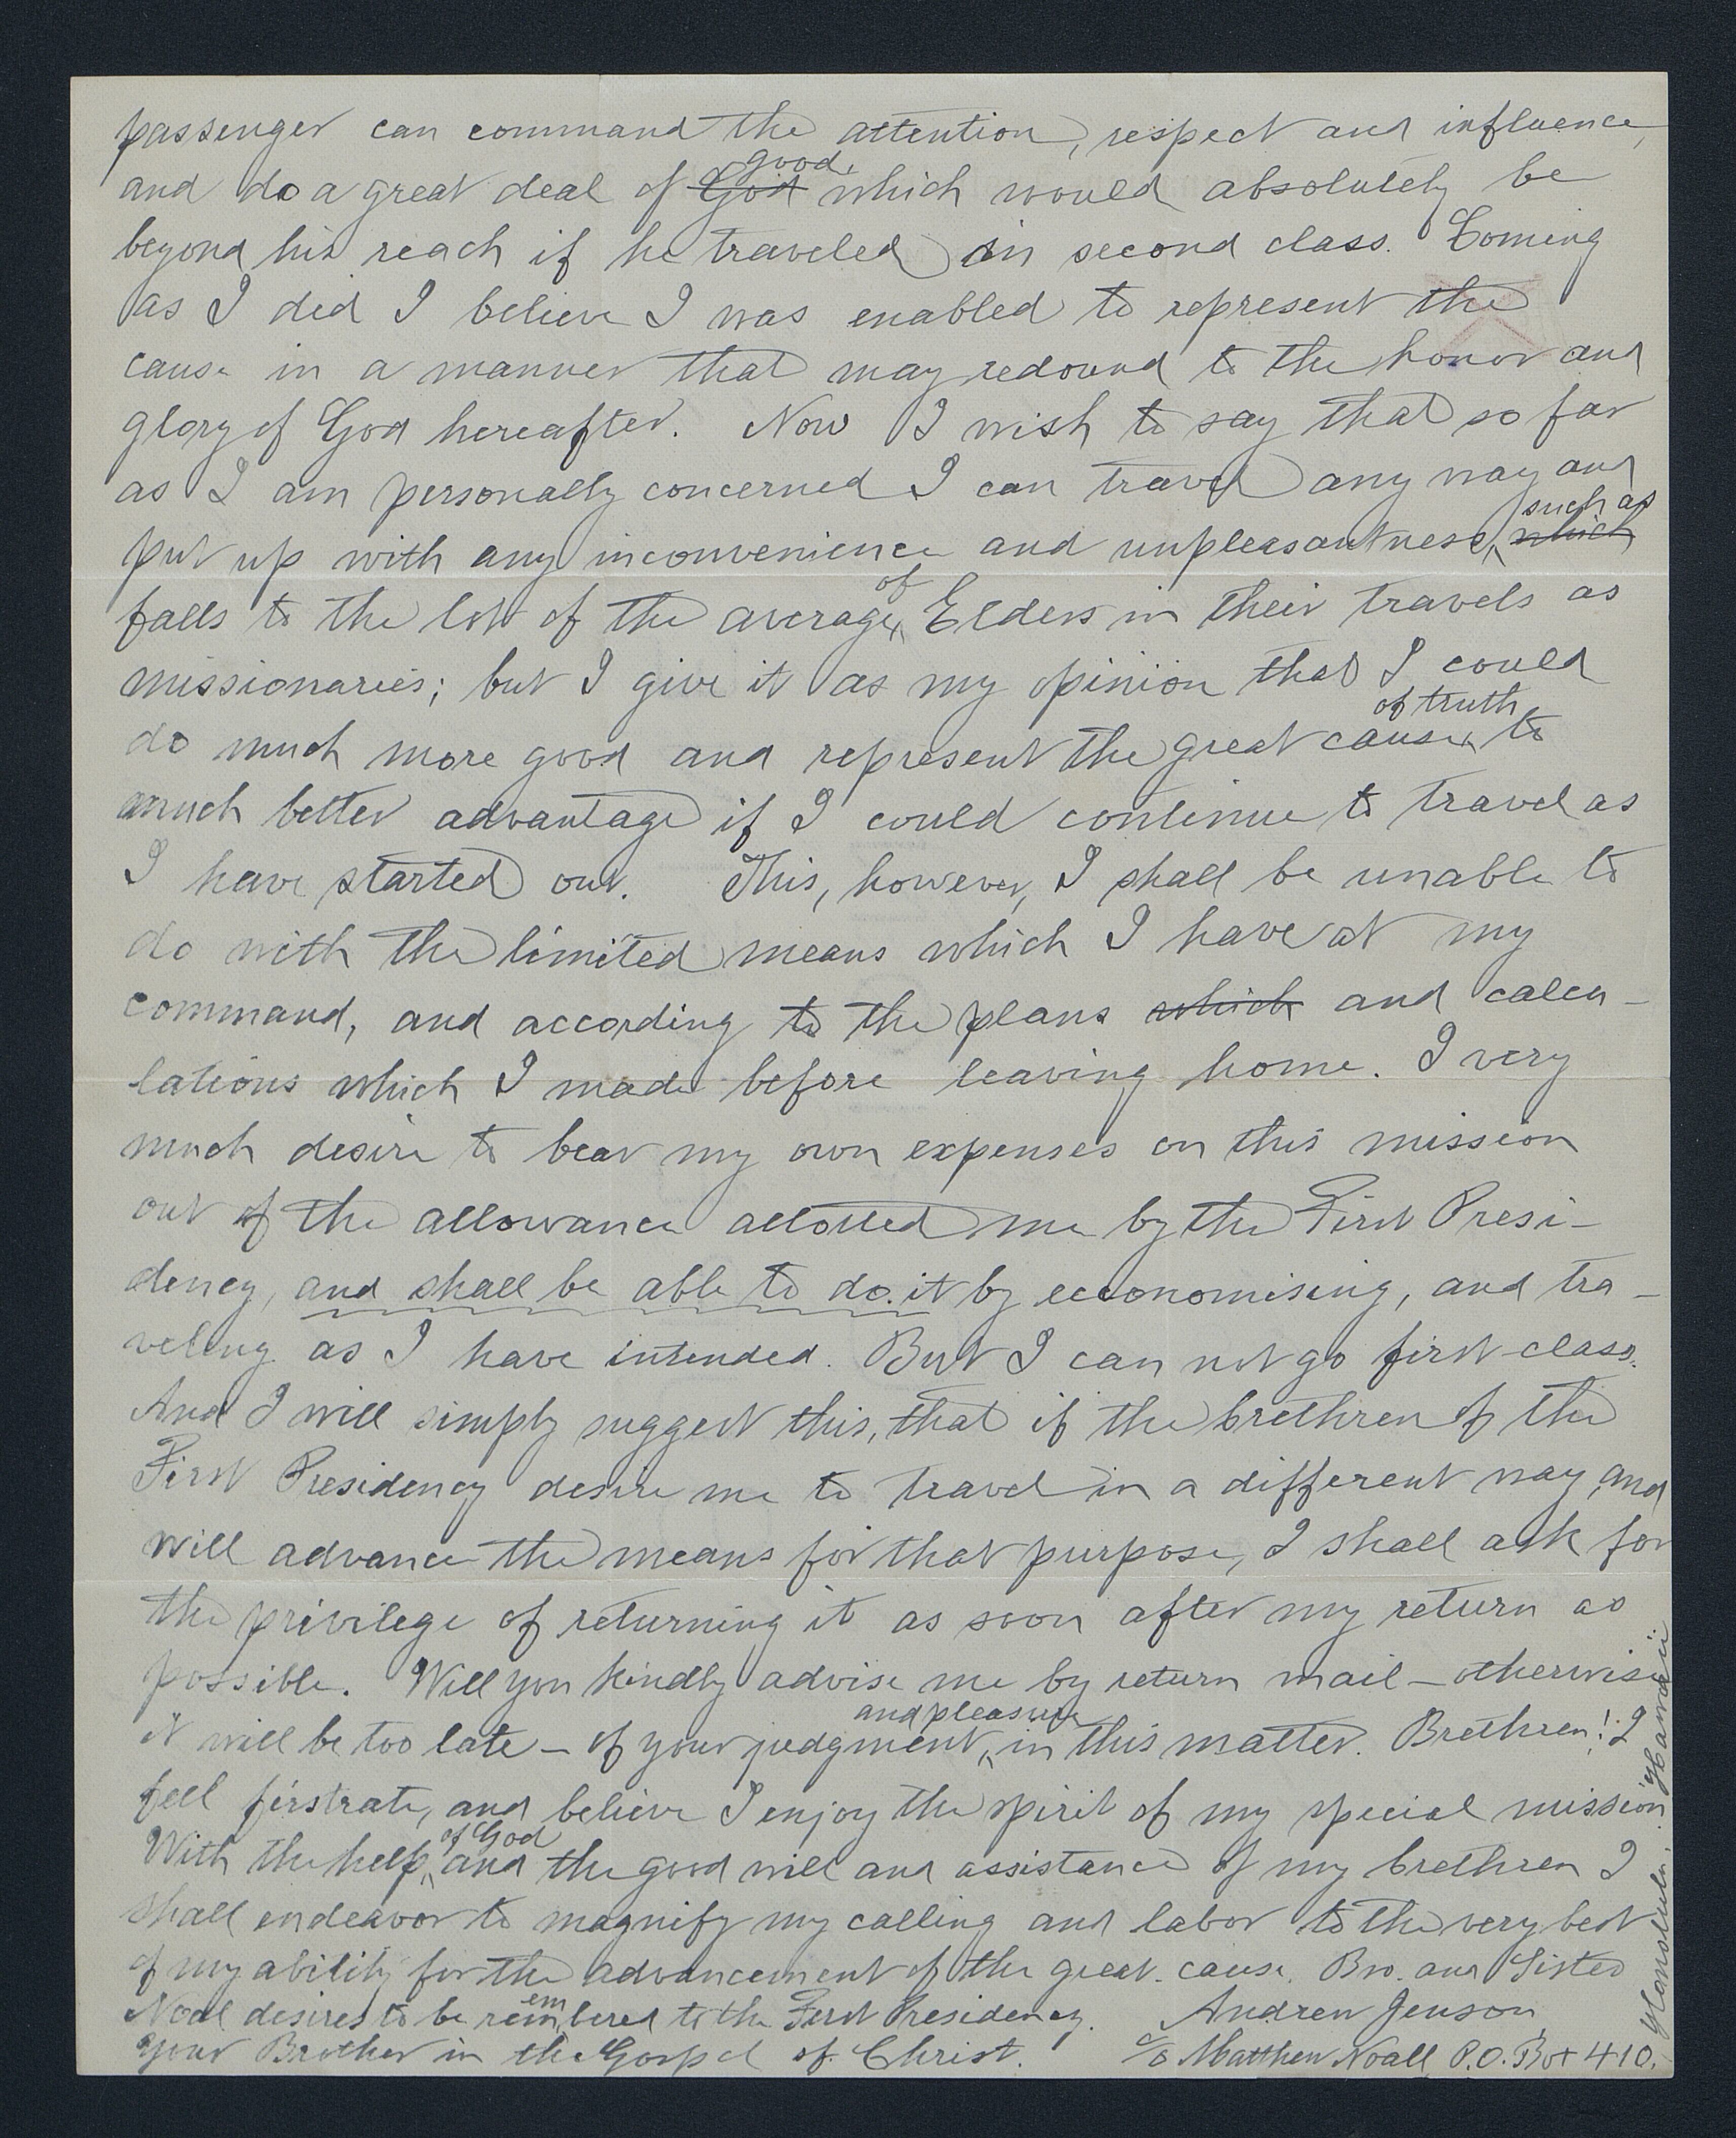 passenger can command the attention, respect and influence,
and do a great deal of God good which would absolutely be
beyond his reach if he traveled in second class. Coming
as I did I believe I was enabled to represent the
cause in a manner that may redound to the honor and
glory of God hereafter. Now I wish to say that so far
as I am personally concerned I can travel any way and
put up with any inconvenience and unpleasantness, which such as
falls to the lot of the average of Elders in their travels as
missionaries; but I give it as my opinion that I could
do much more good and represent the great cause of truth to
much better advantage if I could continue to travel as
I have started out. This, however, I shall be unable to
do with the limited means which I have at my
command, and according to the plans which and calcu-
lations which I made before leaving home. I very
much desire to bear my own expenses on this mission
out of the allowance allotted me by the First Presi-
dency, and shall be able to do it by economising, and tra-
veling as I have intended. But I can not go first-class.
And I will simply suggest this, that if the brethren of the
First Presidency desire me to travel in a different way and
will advance the means for that purpose, I shall ask for
the privilege of returning it as soon after my return as
possible. Will you kindly advise me by return mail – otherwise
it will be too late – of your judgment, and pleasure in this matter. Brethren! I
feel firstrate, and believe I enjoy the spirit of my special mission.
With the help of God and the good will and assistance of my brethren I
shall endeavor to magnify my calling and labor to the very best
of my ability for the advancement of the great cause. Bro. and Sister
Noal desires to be remembered to the First Presidency. Andrew Jenson,
Your Brother in the Gospel of Christ. c/o Matthew Noall, P.O. Box 410.
Honolulu, Hawaii